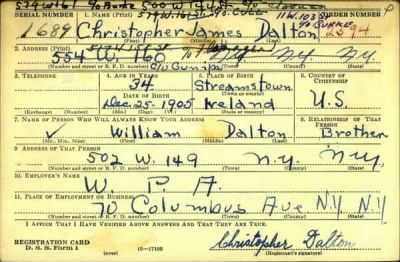 574 W 161 500 W 144 St
SERIAL NUMBER 1. NAME (Print) ORDER NUMBER
11 W. 103 St
1689 Christopher James Dalton 2594
(First) (Middle) (Last)
2. ADDRESS (Print)
554 W. 160 N.Y. N.Y.
(Number and street or R. F. D. number) (Town) (County) (State)
3. TELEPHONE 4. AGE IN YEARS 5. PLACE OF BIRTH 6. COUNTRY OF CITIZENSHIP
34 Streamstown
DATE OF BIRTH (Town or county)
Dec. 25 - 1905 Ireland U.S.
(Exchange) (Number) (Mo.) (Day) (Yr.) (State or country)
7. NAME OF PERSON WHO WILL ALWAYS KNOW YOUR ADDRESS 8. RELATIONSHIP OF THAT PERSON
William Dalton Brother
(Mr., Mrs., Miss) (First) (Middle) (Last)
9. ADDRESS OF THAT PERSON
502 W. 149 N.Y. N.Y.
(Number and street or R. F. D. number) (Town) (County) (State)
10. EMPLOYER'S NAME
W. P. A.
11. PLACE OF EMPLOYMENT OR BUSINESS
70 Columbus Ave N.Y. N.Y.
(Number and street or R. F. D. number) (Town) (County) (State)
I AFFIRM THAT I HAVE VERIFIED ABOVE ANSWERS AND THAT THEY ARE TRUE.
REGISTRATION CARD
D. S. S. Form 1 (over) 16—17105 Christopher Dalton
(Registrant's signature)